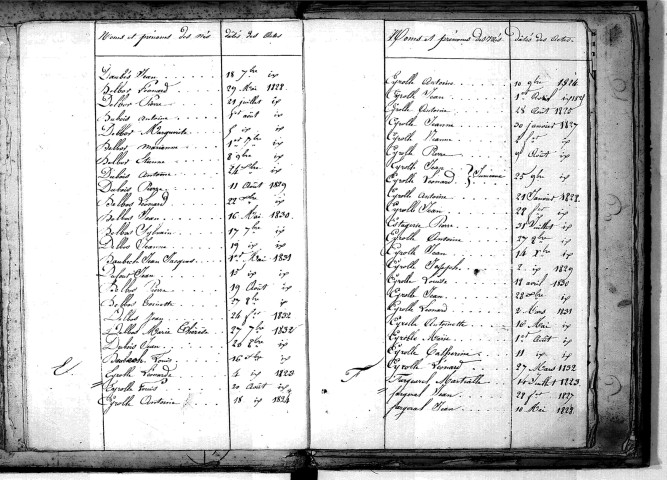 Noms et prénoms des nés dates des Actes
Daubès Jean 18 7bre ix
Delbos Léonard 29 Mai 1828
Delbos Pierre 21 juillet ix
Dubois Antoine 1er août ix
Delbos Marguerite 5 ix ix
Delbos Marianne 1er 7bre ix
Delbos Etienne 8 9bre ix
Dubois Antoine 24 xbre ix
Dubois Pierre 11 Août 1829
Delbos Léonard 22 xbre ix
Delbos Jean 16 Mai 1830
Delbos Sylvain 17 7bre ix
Delbos Jeanne 19 ix ix
Jean Jacques 1er Mai 1831
Dufour Jean 15 ix ix
Delbos Pierre 19 Août ix
Delbos Toinette 27 8bre ix
Delbos Jean 26 fr 1832
Delbos Marie Thérèse 27 7bre 1832
Dubois Jean 26 8bre ix
Louis 16 xbre ix
E
Eyrolle Léonarde 4 ix 1823
Eyrolle Louis 20 Août ix
Eyrolle Antoine 18 ix 1824
Noms et prénoms des nés dates des Actes
Eyrolle Antoine 10 9bre 1824
Eyrolle Jean 1er Avril ix
Eyrolle Antoine 28 Août 1825
Eyrolle Jeanne 30 janvier 1827
Eyrolle Jeanne 2 fr ix
Eyrolle Pierre 9 Août ix
Eyrolle Jean
Eyrolle Léonard } Jumeaux 25 9bre ix
Eyrolle Antoine 21 Janvier 1828
Eyrolle Jean 28 fr ix
Estagerie Pierre 31 Juillet ix
Eyrolle Antoine 27 9bre ix
Eyrolle Jean 14 xbre ix
Eyrolle Joseph 2 ix 1829
Eyrolle Louise 18 avril 1830
Eyrolle Jean 28 xbre ix
Eyrolle Léonard 2 Mars 1831
Eyrolle Antoinette 16 Mai ix
Eyrolle Marie 1er Août ix
Eyrolle Catherine 11 ix ix
Eyrolle Léonard 27 Mars 1832
F
14 Juillet 1823
Farginal Jean 28 fr 1827
Farginal Jean 10 Mai 1828